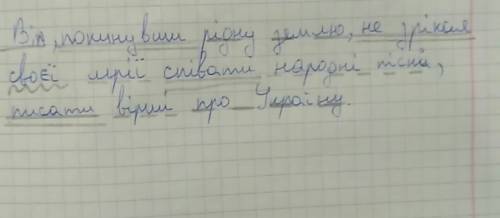 Він, покинувши рідну землю, не зрікся
своєї мрії співати народні пісні,
писати вірші про Україну.